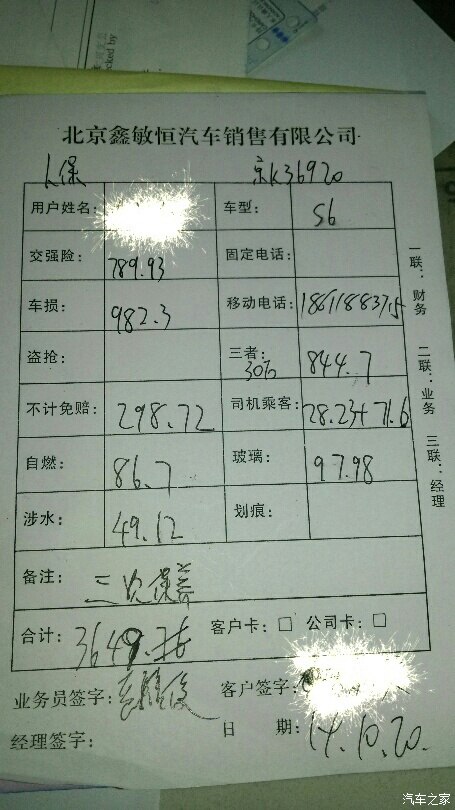 北京鑫敏恒汽车销售有限公司
人保 京K36920
用户姓名: 车型: S6
交强险: 789.93 固定电话:
车损: 982.3 移动电话:
盗抢: 三者: 30万 844.7
不计免赔: 298.72 司机乘客: 28.23+71.6
自燃: 86.7 玻璃: 97.98
涉水: 49.12 划痕:
备注: 三次保养
合计: 客户卡: □ 公司卡: □
业务员签字: 客户签字:
经理签字: 日 期: 14.10.20.
一联:财务 二联:业务 三联:经理
cked by
汽车之家